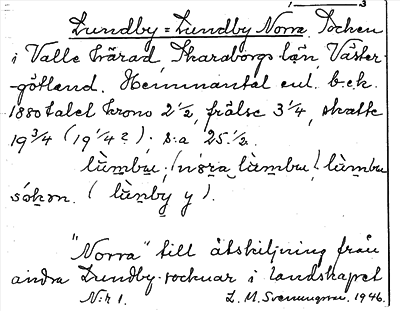 1 — 3
Lundby = Lundby Norra, Socken
i Valle härad, Skaraborgs län, Väster-
götland. Hemmantal enl. b.e.k.
1880 talet krono 2 1/2, frälse 3 1/4, skatte
19 3/4 (19 1/4 ?); s:a 25 1/2.
lùmbu; (nóra lùmbu) lùmbu
sókon. (lùnby y).
"Norra" till åtskiljning från
andra Lundby-socknar i landskapet
N:r 1. L. M. Svenungsson. 1946.